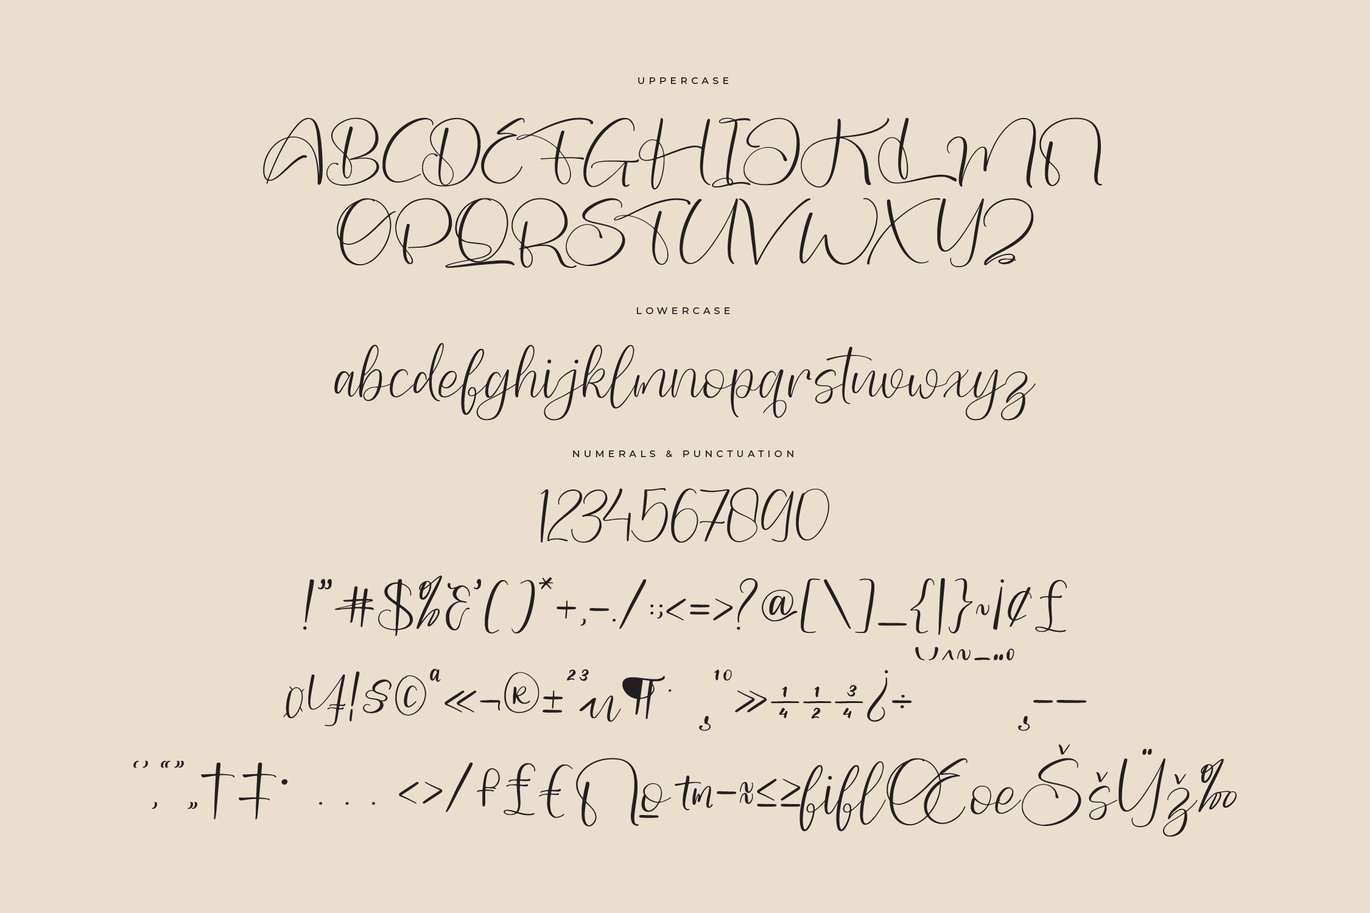 UPPERCASE
ABCDEFGHIJKLMN
OPQRSTUVWXYZ
LOWERCASE
abcdefghijklmnopqrstuvwxyz
NUMERALS & PUNCTUATION
1234567890
!"#$%&'()*+,-./:;<=>?@[\]_{|}~¡¢£
¤¥¦§©ª«¬®±²³µ¶·¸¹º»¼½¾¿÷¸––
‘’‚“”„†‡•...‹›⁄₣₤€№™−≈≤≥fiflŒœŠšŸž‰